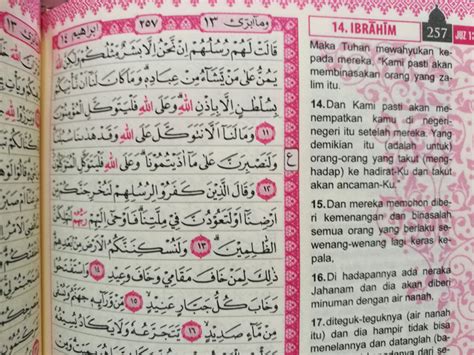 وماابرئ ١٣
٢٥٧
ابراهيم ١٤
قَالَتْ لَهُمْ رُسُلُهُمْ اِنْ نَّحْنُ اِلَّا بَشَرٌ مِّثْلُكُمْ وَلٰكِنَّ
يَمُنُّ عَلٰى مَنْ يَّشَاۤءُ مِنْ عِبَادِهٖ وَمَا كَانَ لَنَآ اَنْ
بِسُلْطٰنٍ اِلَّا بِاِذْنِ اللّٰهِ وَعَلَى اللّٰهِ فَلْيَتَوَكَّلِ الْمُؤْمِنُوْنَ
١١ وَمَا لَنَآ اَلَّا نَتَوَكَّلَ عَلَى اللّٰهِ وَقَدْ هَدٰىنَا سُبُلَنَا
وَلَنَصْبِرَنَّ عَلٰى مَآ اٰذَيْتُمُوْنَا وَعَلَى اللّٰهِ فَلْيَتَوَكَّلِ
١٢ وَقَالَ الَّذِيْنَ كَفَرُوْا لِرُسُلِهِمْ لَنُخْرِجَنَّكُمْ
اَرْضِنَآ اَوْ لَتَعُوْدُنَّ فِيْ مِلَّتِنَا فَاَوْحٰٓى اِلَيْهِمْ رَبُّهُمْ
الظّٰلِمِيْنَ ١٣ وَلَنُسْكِنَنَّكُمُ الْاَرْضَ
ذٰلِكَ لِمَنْ خَافَ مَقَامِيْ وَخَافَ وَعِيْدِ ١٤
وَخَابَ كُلُّ جَبَّارٍ عَنِيْدٍ ١٥ مِّنْ وَّرَاۤىِٕهٖ
مِنْ مَّاۤءٍ صَدِيْدٍ ١٦ يَتَجَرَّعُهٗ وَلَا
14. IBRÂHÎM
257
JUZ 13
Maka Tuhan mewahyukan ke-
pada mereka, "Kami pasti akan
membinasakan orang yang za-
lim itu.
14.Dan Kami pasti akan me-
nempatkan kamu di negeri-
negeri itu setelah mereka. Yang
demikian itu (adalah untuk)
orang-orang yang takut (meng-
hadap) ke hadirat-Ku dan takut
akan ancaman-Ku.
15.Dan mereka memohon dibe-
ri kemenangan dan binasalah
semua orang yang berlaku se-
wenang-wenang lagi keras ke-
pala,
16.Di hadapannya ada neraka
Jahanam dan dia akan diberi
minuman dengan air nanah,
17.diteguk-teguknya (air nanah
itu) dan dia hampir tidak bisa